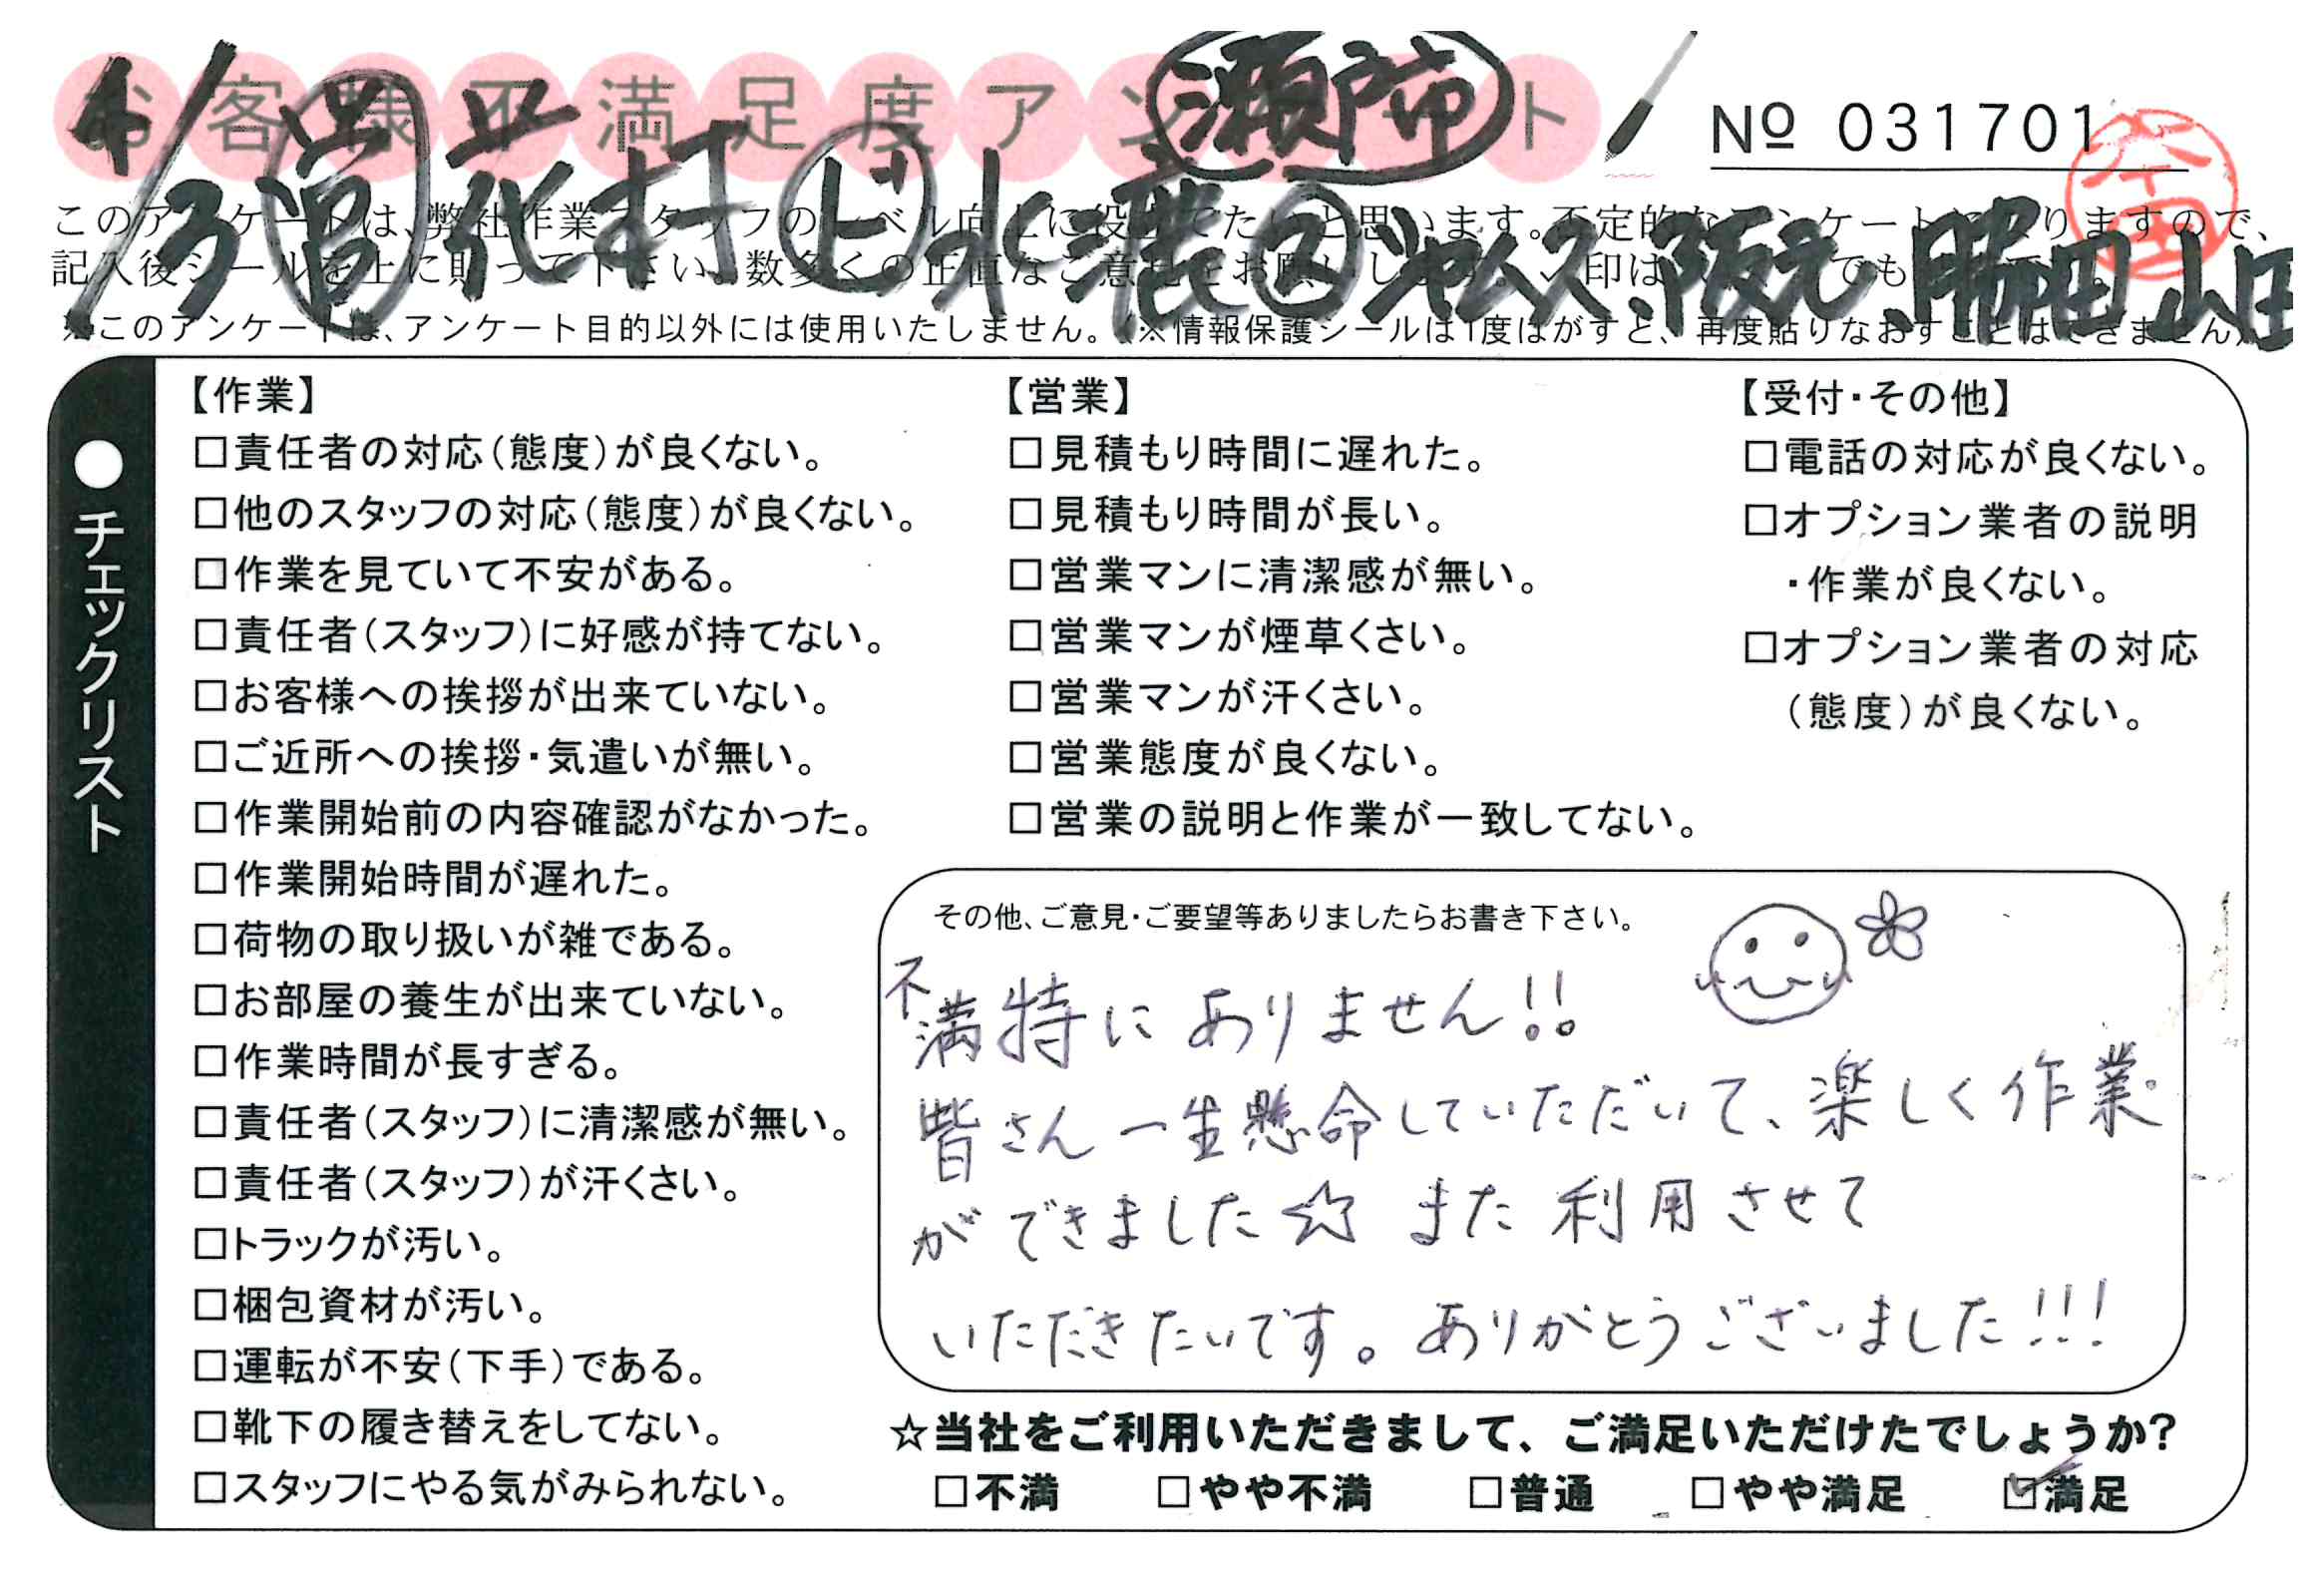 お客様不満足度アンケート
瀬戸市
№ 031701
4/3
このアンケートは、弊社作業スタッフのレベル向上に役立てたいと思います。否定的なアンケートになりますので、
記入後シールを上に貼って下さい。数多くの正直なご意見をお願いします。
※このアンケートは、アンケート目的以外には使用いたしません。(※情報保護シールは1度はがすと、再度貼りなおすことはできません)
●チェックリスト
【作業】
□責任者の対応(態度)が良くない。
□他のスタッフの対応(態度)が良くない。
□作業を見ていて不安がある。
□責任者(スタッフ)に好感が持てない。
□お客様への挨拶が出来ていない。
□ご近所への挨拶・気遣いが無い。
□作業開始前の内容確認がなかった。
□作業開始時間が遅れた。
□荷物の取り扱いが雑である。
□お部屋の養生が出来ていない。
□作業時間が長すぎる。
□責任者(スタッフ)に清潔感が無い。
□責任者(スタッフ)が汗くさい。
□トラックが汚い。
□梱包資材が汚い。
□運転が不安(下手)である。
□靴下の履き替えをしてない。
□スタッフにやる気がみられない。
【営業】
□見積もり時間に遅れた。
□見積もり時間が長い。
□営業マンに清潔感が無い。
□営業マンが煙草くさい。
□営業マンが汗くさい。
□営業態度が良くない。
□営業の説明と作業が一致してない。
【受付・その他】
□電話の対応が良くない。
□オプション業者の説明
・作業が良くない。
□オプション業者の対応
(態度)が良くない。
その他、ご意見・ご要望等ありましたらお書き下さい。
不満特にありません!!
皆さん一生懸命していただいて、楽しく作業
ができました☆ また利用させて
いただきたいです。ありがとうございました!!!
☆当社をご利用いただきまして、ご満足いただけたでしょうか?
□不満 □やや不満 □普通 □やや満足 ☑満足